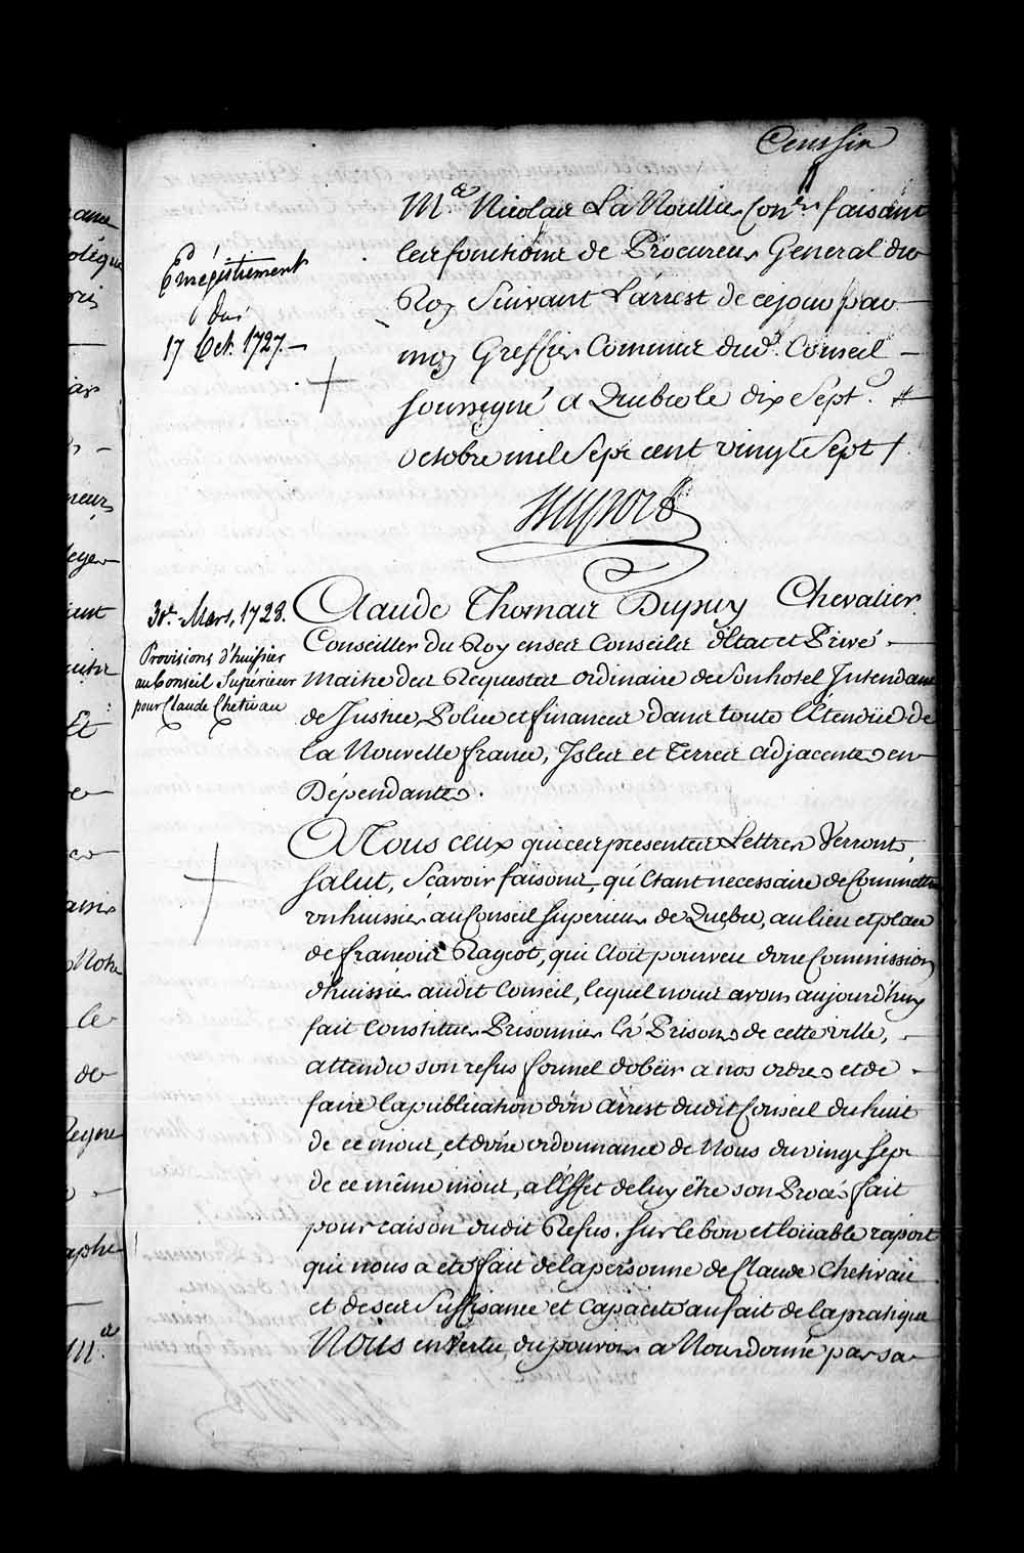 Mᵉ Nicolas La Noullier Conᵉʳ faisant
les fonctions de Procureur General du
Roy Suivant Larrest de ce jour par
moy Greffier Commis dud. Conseil
soussigné a Quebec le dix Sept.
octobre mil Sept cent vingt Sept /.
Enregistrement
du
17 Oct. 1727.
Claude Thomas Dupuy Chevalier
Conseiller du Roy en ses Conseils d'Etat et Privé
Maitre des Requestes ordinaire de Son hotel Intendant
de Justice, Police et finances dans toute L'Etendüe de
La Nouvelle france, Isles et Terres adjacentes en
Dépendantes.
30ᵉ Mars, 1728.
Provisions d'huissier
au Conseil Supérieur
pour Claude Chetivau
ceux qui ces presentes Lettres Verront,
Salut, Scavoir faisons, qu'Etant necessaire de Commettre
un huissier au Conseil Superieur de Quebec, au lieu et place
de françois Rageot, qui Etoit pourveu d'une Commission
d'huissier audit Conseil, lequel nous avons aujourd'huy
fait Constituer Prisonnier és Prisons de cette ville,
attendu son refus formel d'obéir a nos ordres et de
faire la publication d'un Arrest dudit Conseil du huit
de ce mois, et d'une ordonnance de Nous du vingt sept
de ce même mois, a l'Effet de luy être son Procés fait
pour raison dudit Refus, Sur le bon et loüable raport
qui nous a eté fait de la personne de Claude Chetivau
et de ses Suffisance et Capacité au fait de la pratique
Nous en Vertu du pouvoir a Nous donné par sa